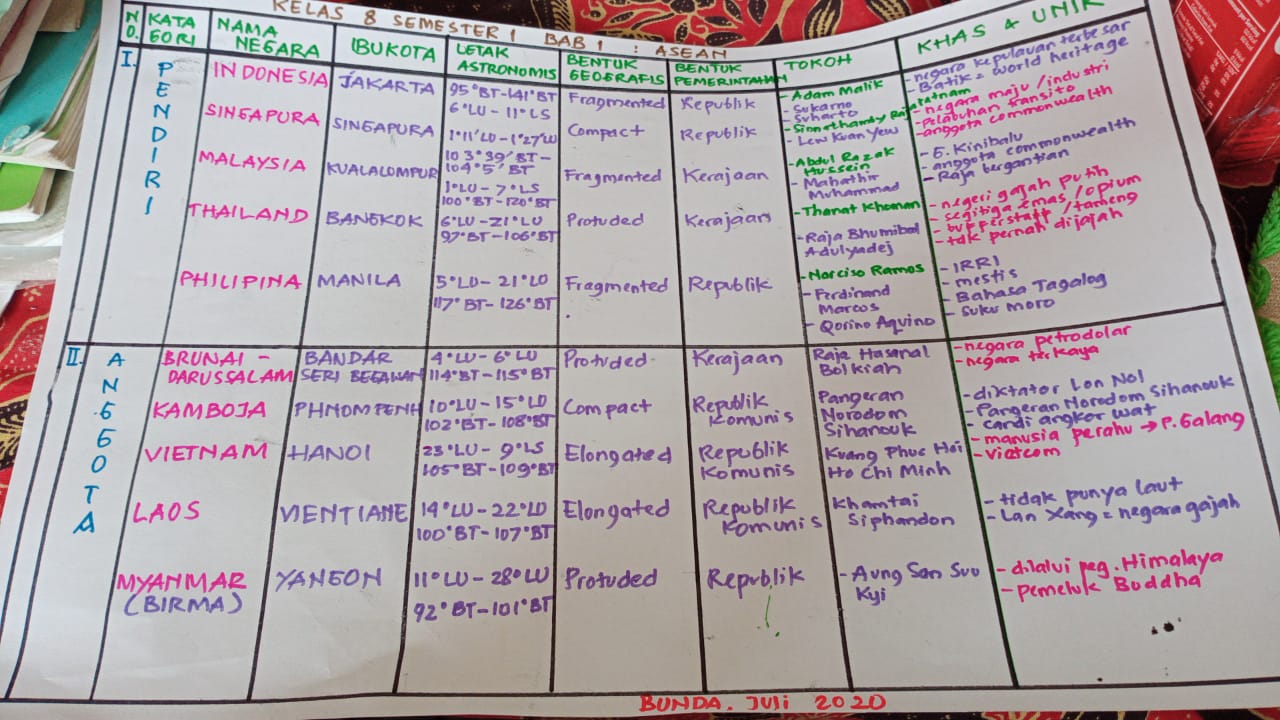 KELAS 8 SEMESTER 1 BAB 1 : ASEAN
NO. KATAGORI NAMA NEGARA IBUKOTA LETAK ASTRONOMIS BENTUK GEOGRAFIS BENTUK PEMERINTAHAN TOKOH KHAS & UNIK
I. PENDIRI
INDONESIA JAKARTA 95°BT-141°BT Fragmented Republik - Adam Malik - negara kepulauan terbesar
6°LU - 11°LS - Sukarno - Batik = world heritage
- Suharto
SINGAPURA SINGAPURA 1°11'LU-1°27'LU Compact Republik - Sinnathamby Rajaratnam - negara maju/industri
103°39'BT- - Lew Kuan Yew - pelabuhan transito
104°5'BT - anggota commonwealth
MALAYSIA KUALALUMPUR 1°LU - 7°LS Fragmented Kerajaan - Abdul Razak - G. Kinibalu
100°BT-120°BT Hussein - anggota commonwealth
- Mahathir - Raja bergantian
Muhammad
THAILAND BANGKOK 6°LU-21°LU Protuded Kerajaan - Thanat Khoman - negeri gajah putih
97°BT-106°BT - Raja Bhumibal - segitiga emas/opium
Adulyadej - bufferstaff/tameng
- tdk pernah dijajah
PHILIPINA MANILA 5°LU - 21°LU Fragmented Republik - Narciso Ramos - IRRI
117°BT-126°BT - Ferdinand - mestis
Marcos - Bahasa Tagalog
- Qorino Aquino - Suku moro
II. ANGGOTA
BRUNAI - BANDAR 4°LU - 6°LU Protuded Kerajaan Raja Hasanal - negara petrodolar
DARUSSALAM SERI BEGAWAN 114°BT-115°BT Bolkiah - negara terkaya
KAMBOJA PHNOMPENH 10°LU - 15°LU Compact Republik Pangeran - diktator Lon Nol
102°BT-108°BT Komunis Norodom - Pangeran Norodom Sihanouk
Sihanouk - candi angkor wat
VIETNAM HANOI 23°LU - 9°LS Elongated Republik Kuang Phuc Hoi - manusia perahu → P. Galang
105°BT-109°BT Komunis Ho Chi Minh - Vietcom
LAOS VIENTIANE 14°LU - 22°LU Elongated Republik Khamtai - tidak punya laut
100°BT-107°BT Komunis Siphandon - Lan Xang = negara gajah
MYANMAR YANGON 11°LU - 28°LU Protuded Republik - Aung San Suu - dilalui peg. Himalaya
(BIRMA) 92°BT-101°BT Kyi - pemeluk Buddha
BUNDA. Juli 2020